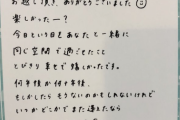 お越し頂き、ありがとうございました
楽しかったー?
今日という日をあなたと一緒に
同じ空間で過ごせたこと
とびきり幸せで嬉しかったです。
何年後か何十年後、
もしかしたら もうないのかもしれないけれど
いつか どこかで また逢えたなら